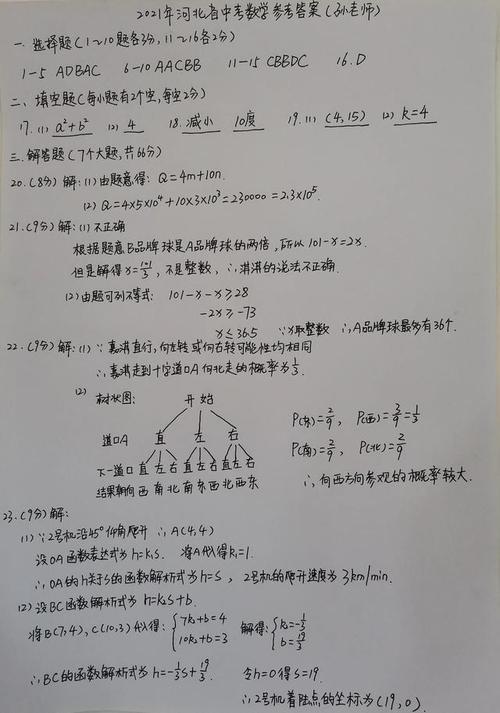 2021年河北省中考数学参考答案(孙老师)
一.选择题(1~10题各3分,11~16各2分)
1-5 ADBAC 6-10 AACBB 11-15 CBBDC 16.D
二、填空题(每小题有2个空,每空2分)
17.(1) a²+b² (2) 4 18.减小 10度 19.(1) (4,15) (2) k=4
三.解答题(7个大题,共66分)
20.(8分)解:(1)由题意得: Q=4m+10n.
(2) Q=4×5×10⁴+10×3×10³=230000=2.3×10⁵.
21.(9分)解:(1)不正确
根据题意B品牌球是A品牌球的两倍,所以101-x=2x.
但是解得x=101/3,不是整数,∴淇淇的说法不正确.
(2)由题可列不等式: 101-x-x≥28
-2x≥-73
x≤36.5 ∵x取整数 ∴A品牌球最多有36个.
22.(9分)解:(1)∵嘉淇直行,向左转或向右转可能性均相同
∴嘉淇走到十字道口A向北走的概率为1/3.
(2) 树状图: 开始
道口A 直 左 右
下一道口 直左右 直左右 直左右
结果朝向 西南北 南东西 北西东
P(东)=2/9, P(西)=3/9=1/3
P(南)=2/9, P(北)=2/9
∴向西方向参观的概率较大.
23.(9分)解:
(1)∵2号机沿45°仰角爬升 ∴A(4,4)
设OA函数表达式为h=k₁s. 将A代得k₁=1.
∴OA的h关于s的函数解析式为h=s, 2号机的爬升速度为3km/min.
(2)设BC函数解析式为h=k₂s+b.
将B(7,4),C(10,3)代得: {7k₂+b=4 10k₂+b=3 解得: {k₂=-1/3 b=19/3
∴BC的函数解析式为h=-1/3s+19/3. 令h=0得s=19.
∴2号机着陆点的坐标为(19,0).